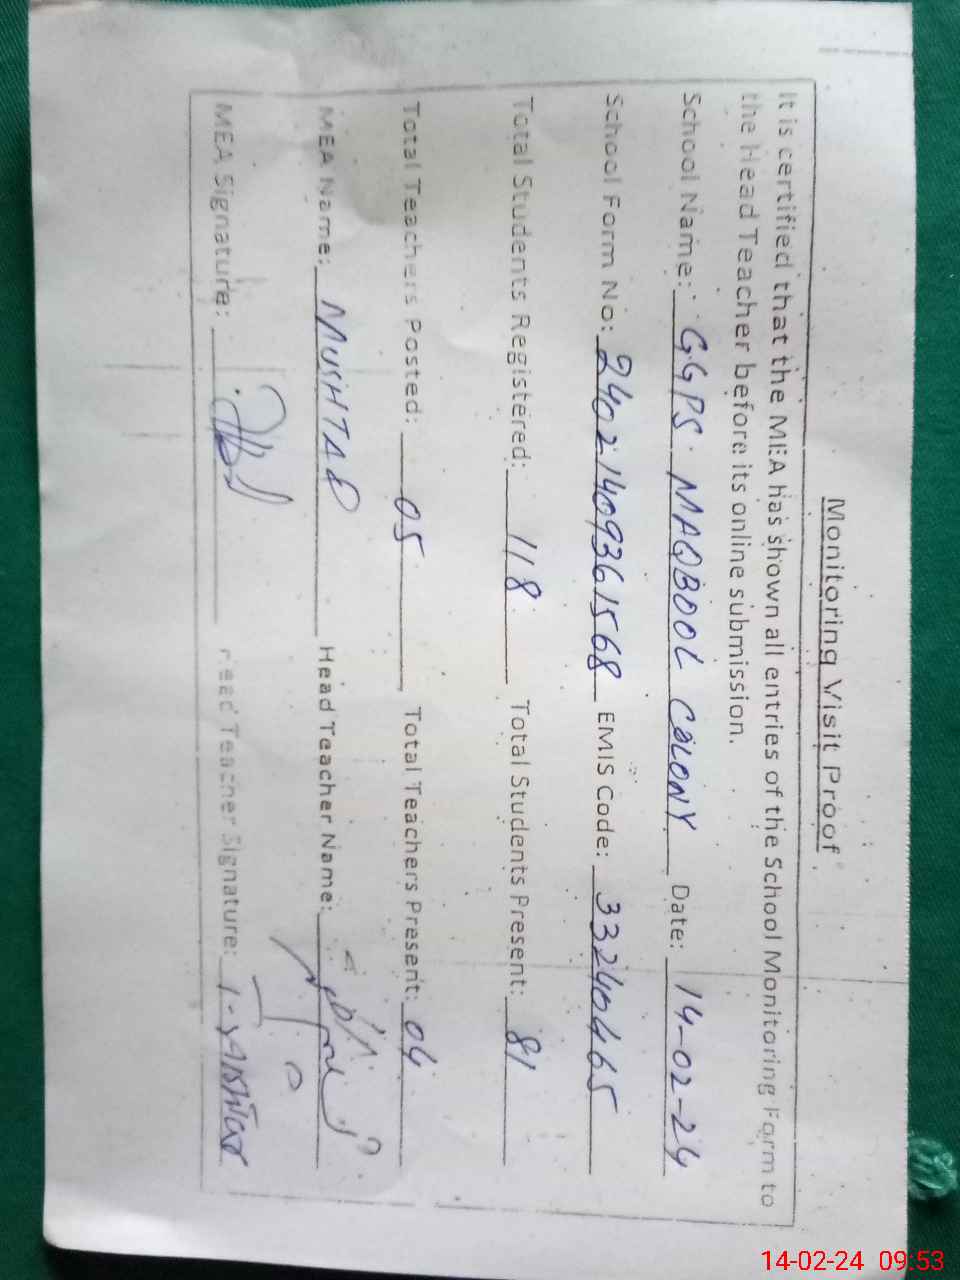 Monitoring Visit Proof
It is certified that the MEA has shown all entries of the School Monitoring Form to
the Head Teacher before its online submission.
School Name: GGPS MAQBOOL COLONY Date: 14-02-24
School Form No: 24021409361568 EMIS Code: 33240465
Total Students Registered: 118 Total Students Present: 81
Total Teachers Posted: 05 Total Teachers Present: 04
MEA Name: MUSHTAQ Head Teacher Name:
MEA Signature: Head Teacher Signature:
14-02-24 09:53